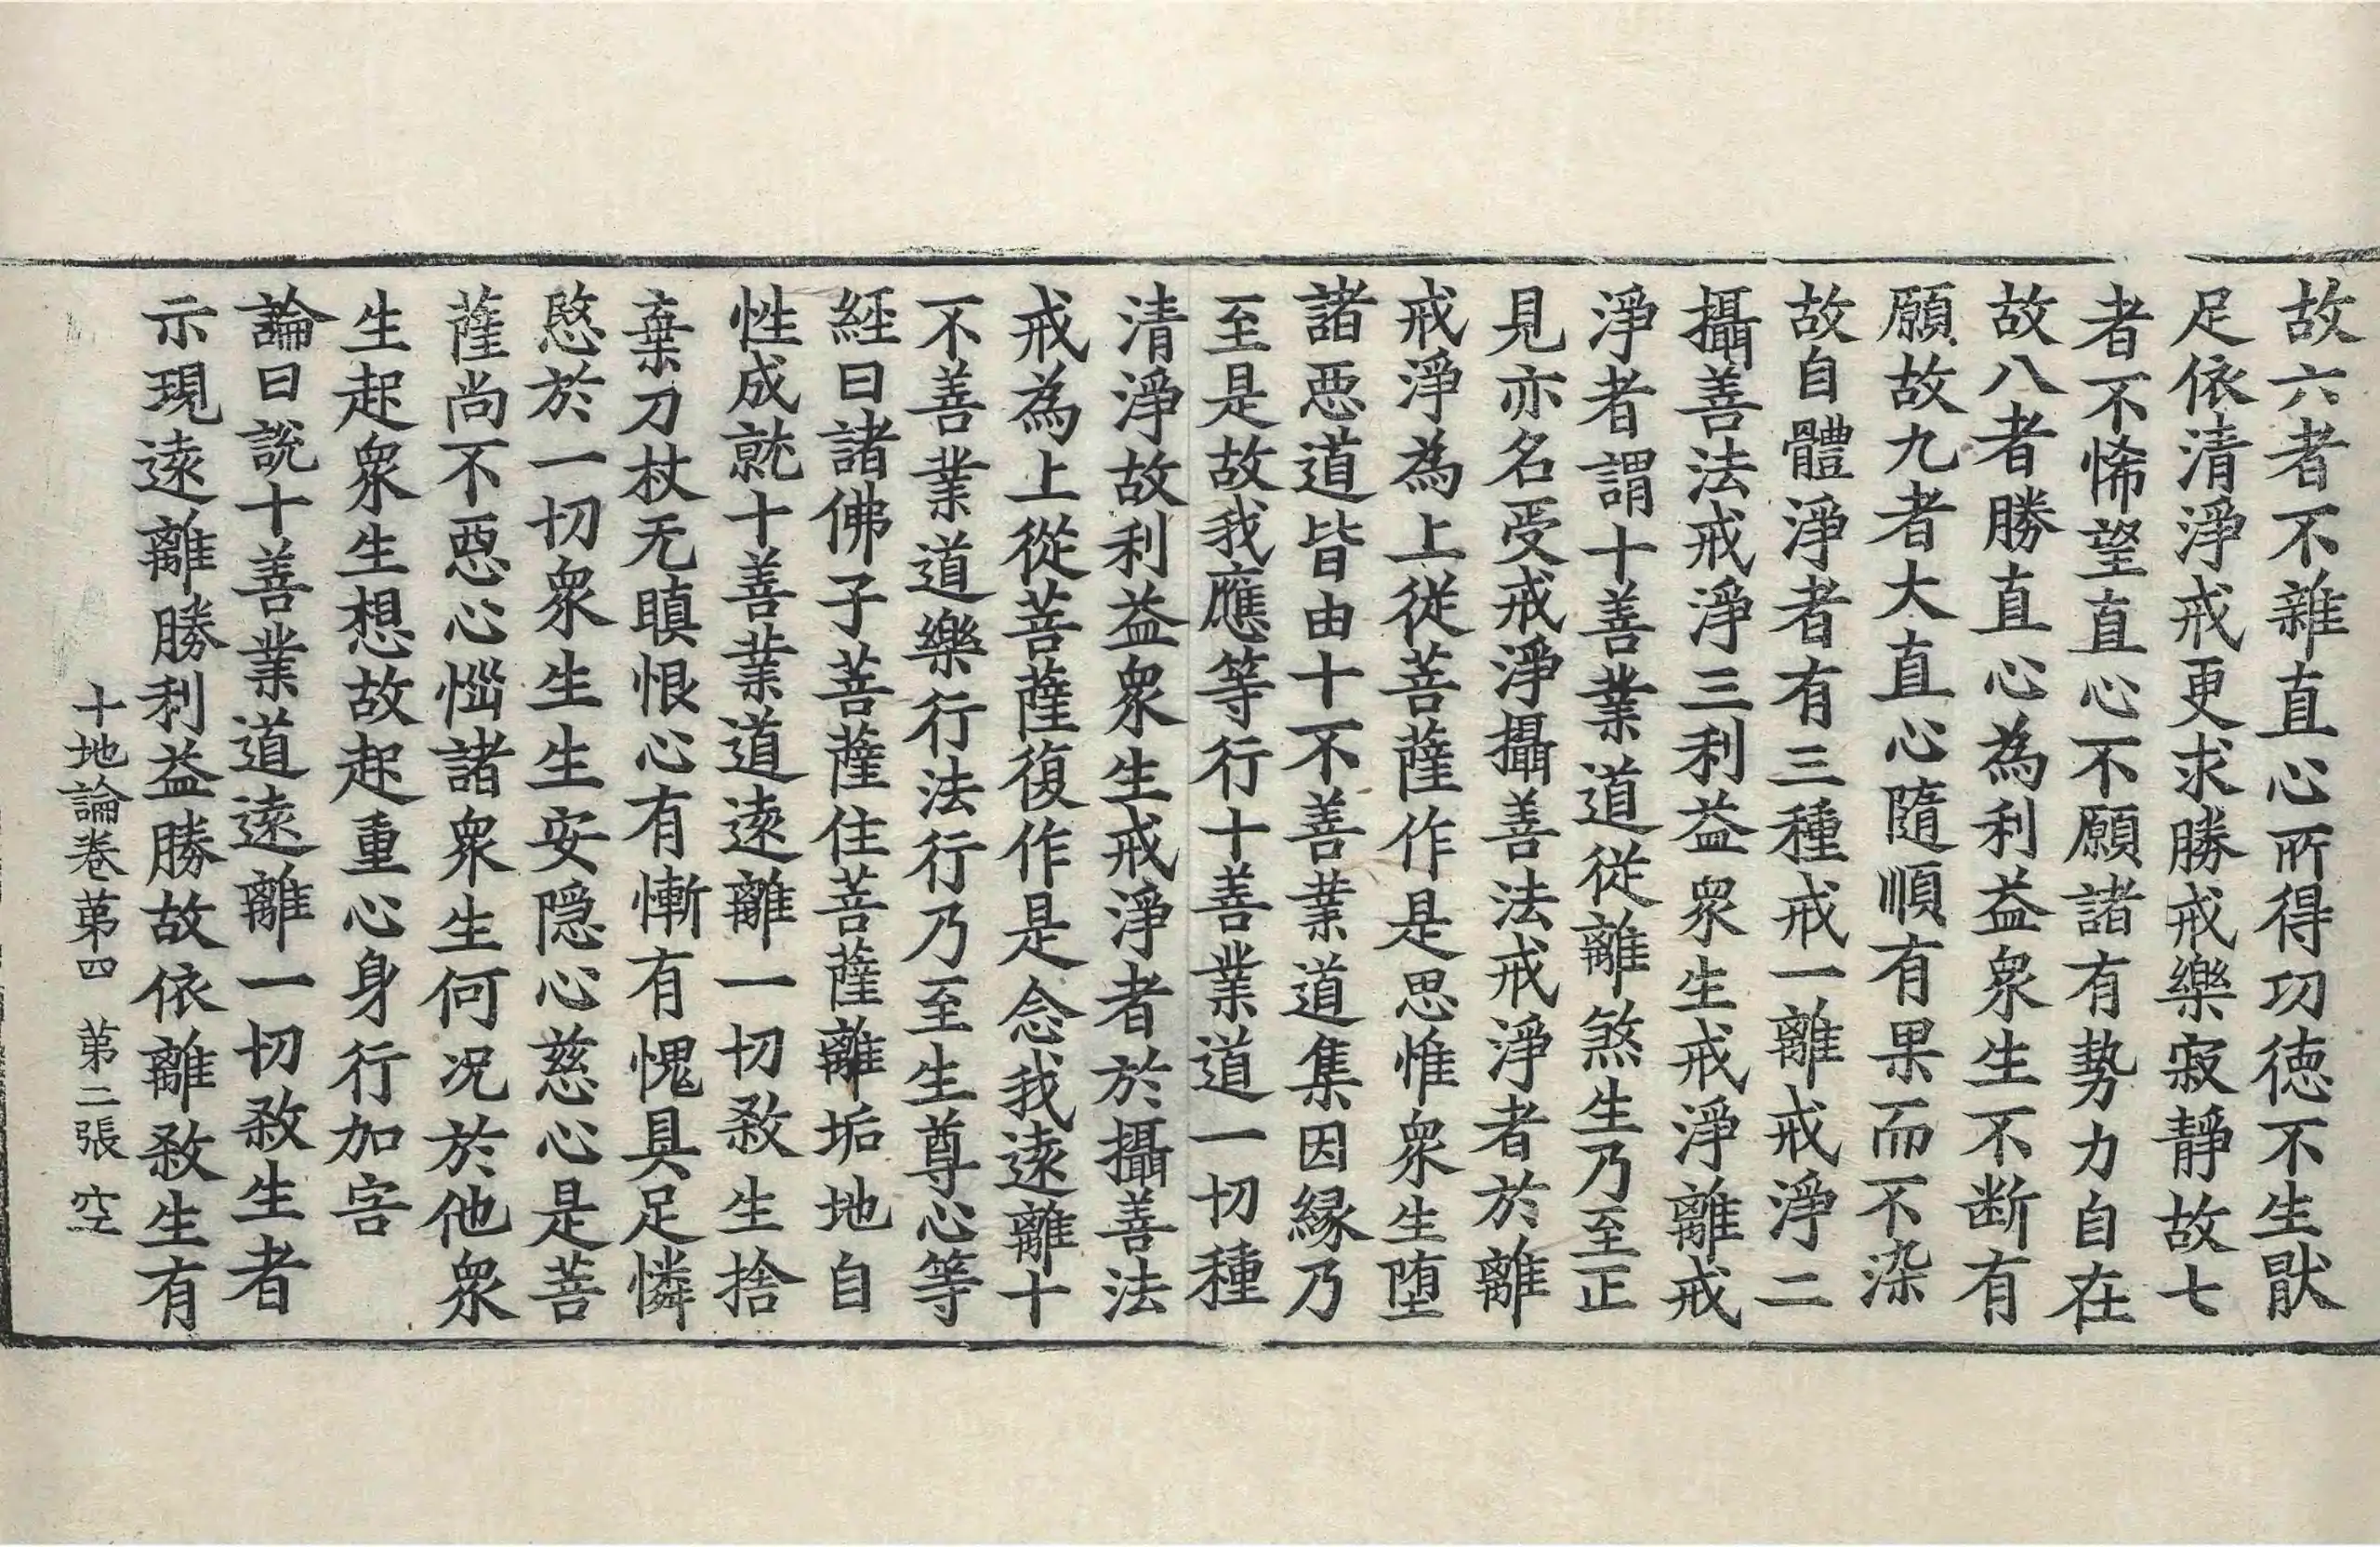 故六者不雜直心所得功徳不生猒
足依清淨戒更求勝戒樂寂靜故七
者不悕望直心不願諸有勢力自在
故八者勝直心為利益衆生不断有
願故九者大直心隨順有果而不染
故自體淨者有三種戒一離戒淨二
攝善法戒淨三利益衆生戒淨離戒
淨者謂十善業道從離煞生乃至正
見亦名受戒淨攝善法戒淨者於離
戒淨為上從菩薩作是思惟衆生堕
諸惡道皆由十不善業道集因緣乃
至是故我應等行十善業道一切種
清淨故利益衆生戒淨者於攝善法
戒為上從菩薩復作是念我遠離十
不善業道樂行法行乃至生尊心等
經曰諸佛子菩薩住菩薩離垢地自
性成就十善業道遠離一切煞生捨
棄刀杖无瞋恨心有慚有愧具足憐
愍於一切衆生生安隱心慈心是菩
薩尚不惡心惱諸衆生何况於他衆
生起衆生想故起重心身行加害
論曰說十善業道遠離一切煞生者
示現遠離勝利益勝故依離煞生有
十地論卷苐四 苐三張 空